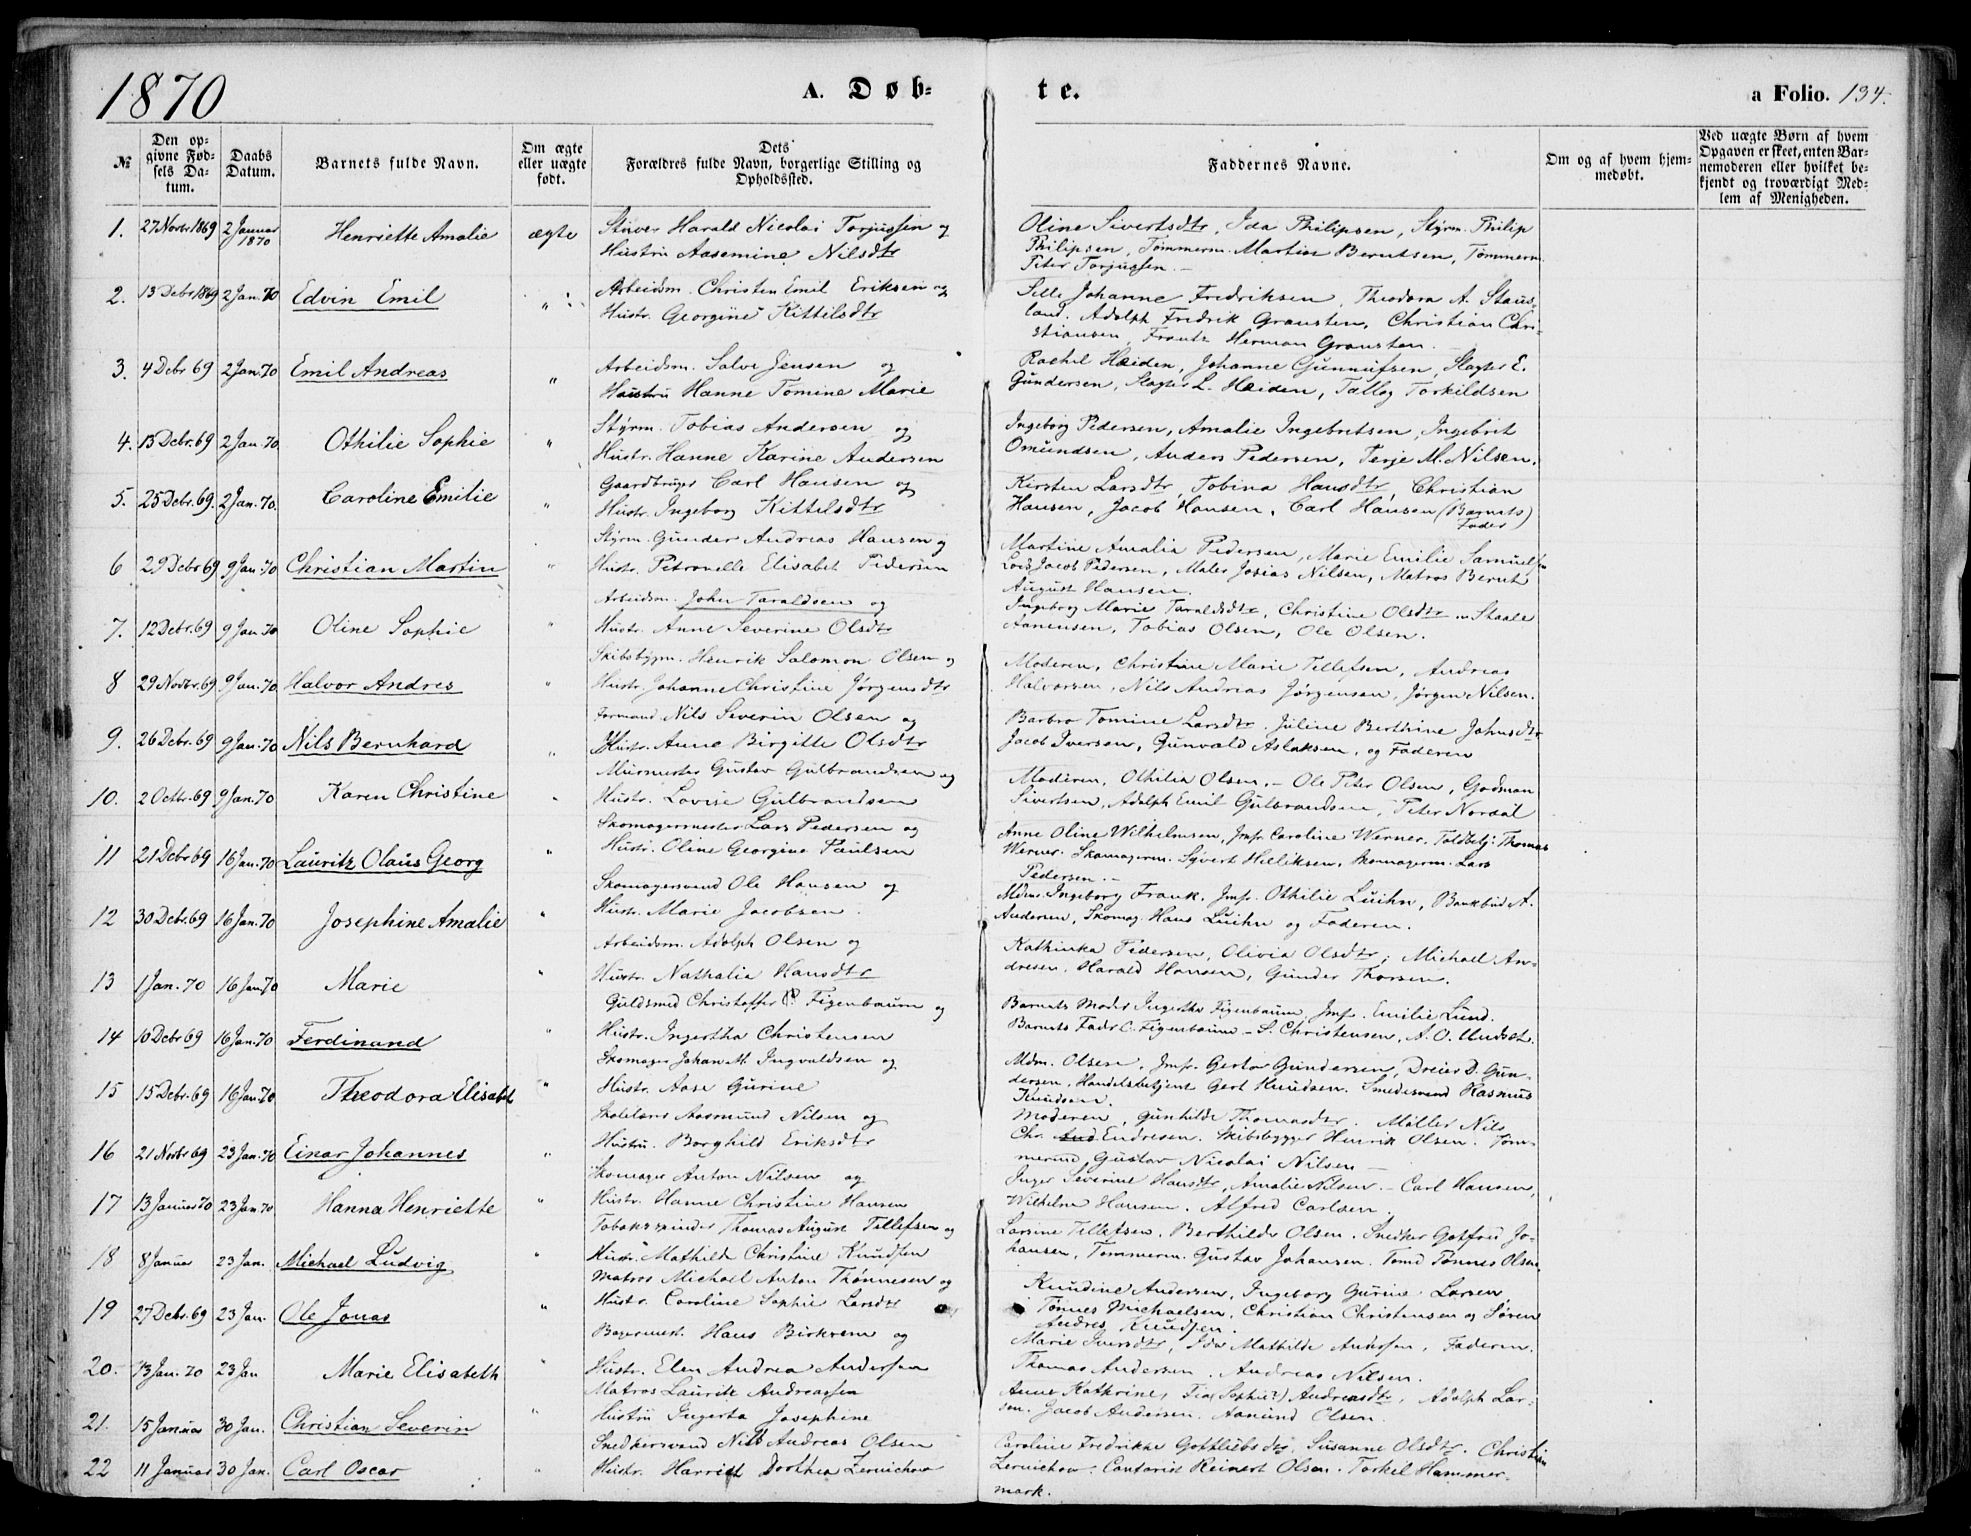 1870
A. Døb-
te.
a Folio. 134.
№
Den op-
givne Fød-
sels Da-
tum.
Daabs
Datum.
Barnets fulde Navn.
Om ægte
eller uægte
født.
Dets
Forældres fulde Navn, borgerlige Stilling og
Opholdssted.
Faddernes Navne.
Om og af hvem hjem-
medøbt.
Ved uægte Børn af hvem
Opgaven er skeet, enten Bar-
nemoderen eller hvilket be-
kjendt og troværdigt Med-
lem af Menigheden.
1. 27 Novbr 1869 2 Januar 1870 Henriette Amalie ægte
Stuver Harald Nicolai Torjussen og
Hustru Aasemine Nilsdtr
Oline Sivertsdtr, Ida Philipsen, Styrm. Philip
Philipsen, Tømmerm. Martin Berntsen, Tømmerm.
Peter Torjussen.
2. 13 Debr 1869 2 Jan. 70 Edvin Emil "
Arbeidsm. Christen Emil Eriksen og
Hustr. Georgine Kittilsdtr
Sille Johanne Fredriksen, Theodora A. Staus-
land. Adolph Fredrik Gransten, Christian Chri-
stiansen, Frantz Herman Gransten.
3. 4 Debr 69 2 Jan. 70 Emil Andreas "
Arbeidsm. Salve Jensen og
Hustru Hanne Tomine Marie
Rachel Heiden, Johanne Gunnufsen, Slagter E.
Gundersen, Slagter L. Heiden, Tallog Torkildsen
4. 13 Debr. 69 2 Jan. 70. Othilie Sophie "
Styrm. Tobias Andersen og
Hustr. Hanne Karine Andersen
Ingeborg Pedersen, Amalie Ingebretsen, Ingebrit
Omundsen, Anders Pedersen, Terje M. Nilsen.
5. 25 Debr. 69. 2 Jan. 70. Caroline Emilie "
Gaardbruger Carl Hansen og
Hustr. Ingeborg Kittelsdtr
Kirsten Larsdtr, Tobina Hansdtr, Christian
Hansen, Jacob Hansen, Carl Hansen (Barnets)
Fader
6 29 Debr 69 9 Jan. 70 Christian Martin "
Styrm. Gunder Andreas Hansen og
Hustr. Petronelle Elisabet Pedersen
Martine Amalia Pedersen, Marie Emilie Samuelsen
Lods Jacob Pedersen, Maler Josias Nilsen, Matros Bernt
August Hansen.
7. 12 Debr. 69 9 Jan 70 Oline Sophie "
Arbeidsm. John Taraldsen og
Hustr. Anne Severine Olsdtr
Ingeborg Marie Taraldsdtr, Christine Olsdtr, Staale
Aanensen, Tobias Olsen, Ole Olsen.
8 29 Novbr. 69 9 Jan. 70 Halvor Andres "
Skibsbygm. Henrik Salomon Olsen og
Hustr. Johanne Christine Jørgensdtr
Moderen, Christine Marie Tellefsen, Andreas
Halvorsen, Nils Andreas Jørgensen, Jørgen Nilsen.
9. 26 Debr. 69 9 Jan. 70 Nils Bernhard "
Formand Nils Severin Olsen og
Hustr. Anne Birgitte Olsdtr
Barbro Tomine Larsdtr. Juline Berthine Johnsdtr
Jacob Iversen, Gunvald Aslaksen, og Faderen
10. 2 Octbr. 69 9 Jan. 70 Karen Christine "
Murmester Gustav Gulbrandsen og
Hustr. Lovise Gulbrandsen
Moderen, Othilia Olsen, Ole Peter Olsen, Godman
Sivertsen, Adolph Emil Gulbrandsen, Peter Nordal
11 21 Debr 69 16 Jan. 70 Lauritz Olaus Georg "
Skomagermester Lars Pedersen og
Hustr. Oline Georgine Paulsen
Anne Oline Wilhelmsen, Jmfr. Caroline Werner, Toldbetj. Thomas
Werner. Skomagerm. Syvert Hilliksen, Skomagerm. Lars
Pedersen.
12 30 Debr. 69 16 Jan. 70 Josephine Amalie "
Skomagersvend Ole Hansen og
Hustr. Marie Jacobsen.
Mdm. Ingeborg Frank. Jmfr. Othilie Luihn, Bankbud A.
Andersen, Skomag. Hans Luihn og Faderen.
13 1 Jan. 70 16 Jan. 70 Marie "
Arbeidsm. Adolph Olsen og
Hustr. Nathalia Hansdtr
Kathinka Pedersen, Olivia Olsdtr, Michael An-
dresen. Harald Hansen, Gunder Thorsen.
14 10 Debr 69 16 Jan. 70 Ferdinand "
Guldsmed Christoffer Figenbaum og
Hustr. Ingertha Christensen
Barnets Moder Ingertha Figenbaum, Jmfr. Emilie Lund.
Barnets Fader C. Figenbaum - S. Christensen, A. O. Undset.
15 15 Debr. 69 16 Jan. 70 Theodora Elisabet "
Skomager Johan M. Ingvaldsen og
Hustr. Aase Gurine
Mdm. Olsen, Jmfr. Gerta Gundersen, Dreier D. Gun-
dersen, Handelsbetjent Gert Knudsen. Smedesvend Rasmus
Knudsen.
16 21 Novbr 69 23 Jan. 70 Einar Johannes "
Skolelærer Aasmund Nilsen og
Hustru. Borghild Eriksdtr
Moderen, Gunhilde Thomasdtr. Møller Nils
Chr. And. Endresen. Skibsbygger Henrik Olsen. Tøm-
mermd Gustav Nicolai Nilsen
17 13 Januar 70 23 Jan. 70 Hanna Henriette "
Skomager Anton Nilsen og
Hustr. Hanne Christine Hansen
Inger Severine Hansdtr, Amalie Nilsen. - Carl Hansen,
Wilhelm Hansen. Alfred Carlsen.
18 8 Januar 23 Jan. Michael Ludvig "
Tobaksspinder Thomas August Tellefsen og
Hustr. Mathilde Christine Knudsen
Larsine Tellefsen. Berthilde Olsen. Snedker Gotfred Jo-
hansen, Tømmerm. Gustav Johansen. Tønnes Olsen.
19 27 Debr. 69 23 Jan. Ole Jonas "
Matros Michael Anton Thønnesen og
Hustr. Caroline Sophie Larsdtr
Knudine Andersen, Ingeborg Gurine Larsen,
Tønnes Michaelsen, Christian Christensen og Søren
Andres Knudsen.
20. 13 Jan. 70 23 Jan Marie Elisabeth "
Bagermest. Hans Birkrem og
Hustr. Elen Andrea Andersen
Marie Iversdtr, Ida Mathilde Andersen, Faderen.
Thomas Andersen. Andreas Nilsen.
21. 15 Januar 30 Jan. Christian Severin "
Matros Lauritz Andreassen
Hustru Ingerta Josephine
Anne Kathrine, Fia (Sophie?) Andreasdtr, Adolph Lar-
sen. Jacob Andersen. Aanund Olsen.
22 11 Januar 30 Jan. Carl Oscar "
Snedkersvend Nils Andreas Olsen
Hustr. Harriet Dorthea Zernichow
Caroline Fredrikke Gottliebsdtr, Susanne Olsdtr. Christian
Zernichow. Cantorist Reinert Olsen. Torkel Hammer-
mark.